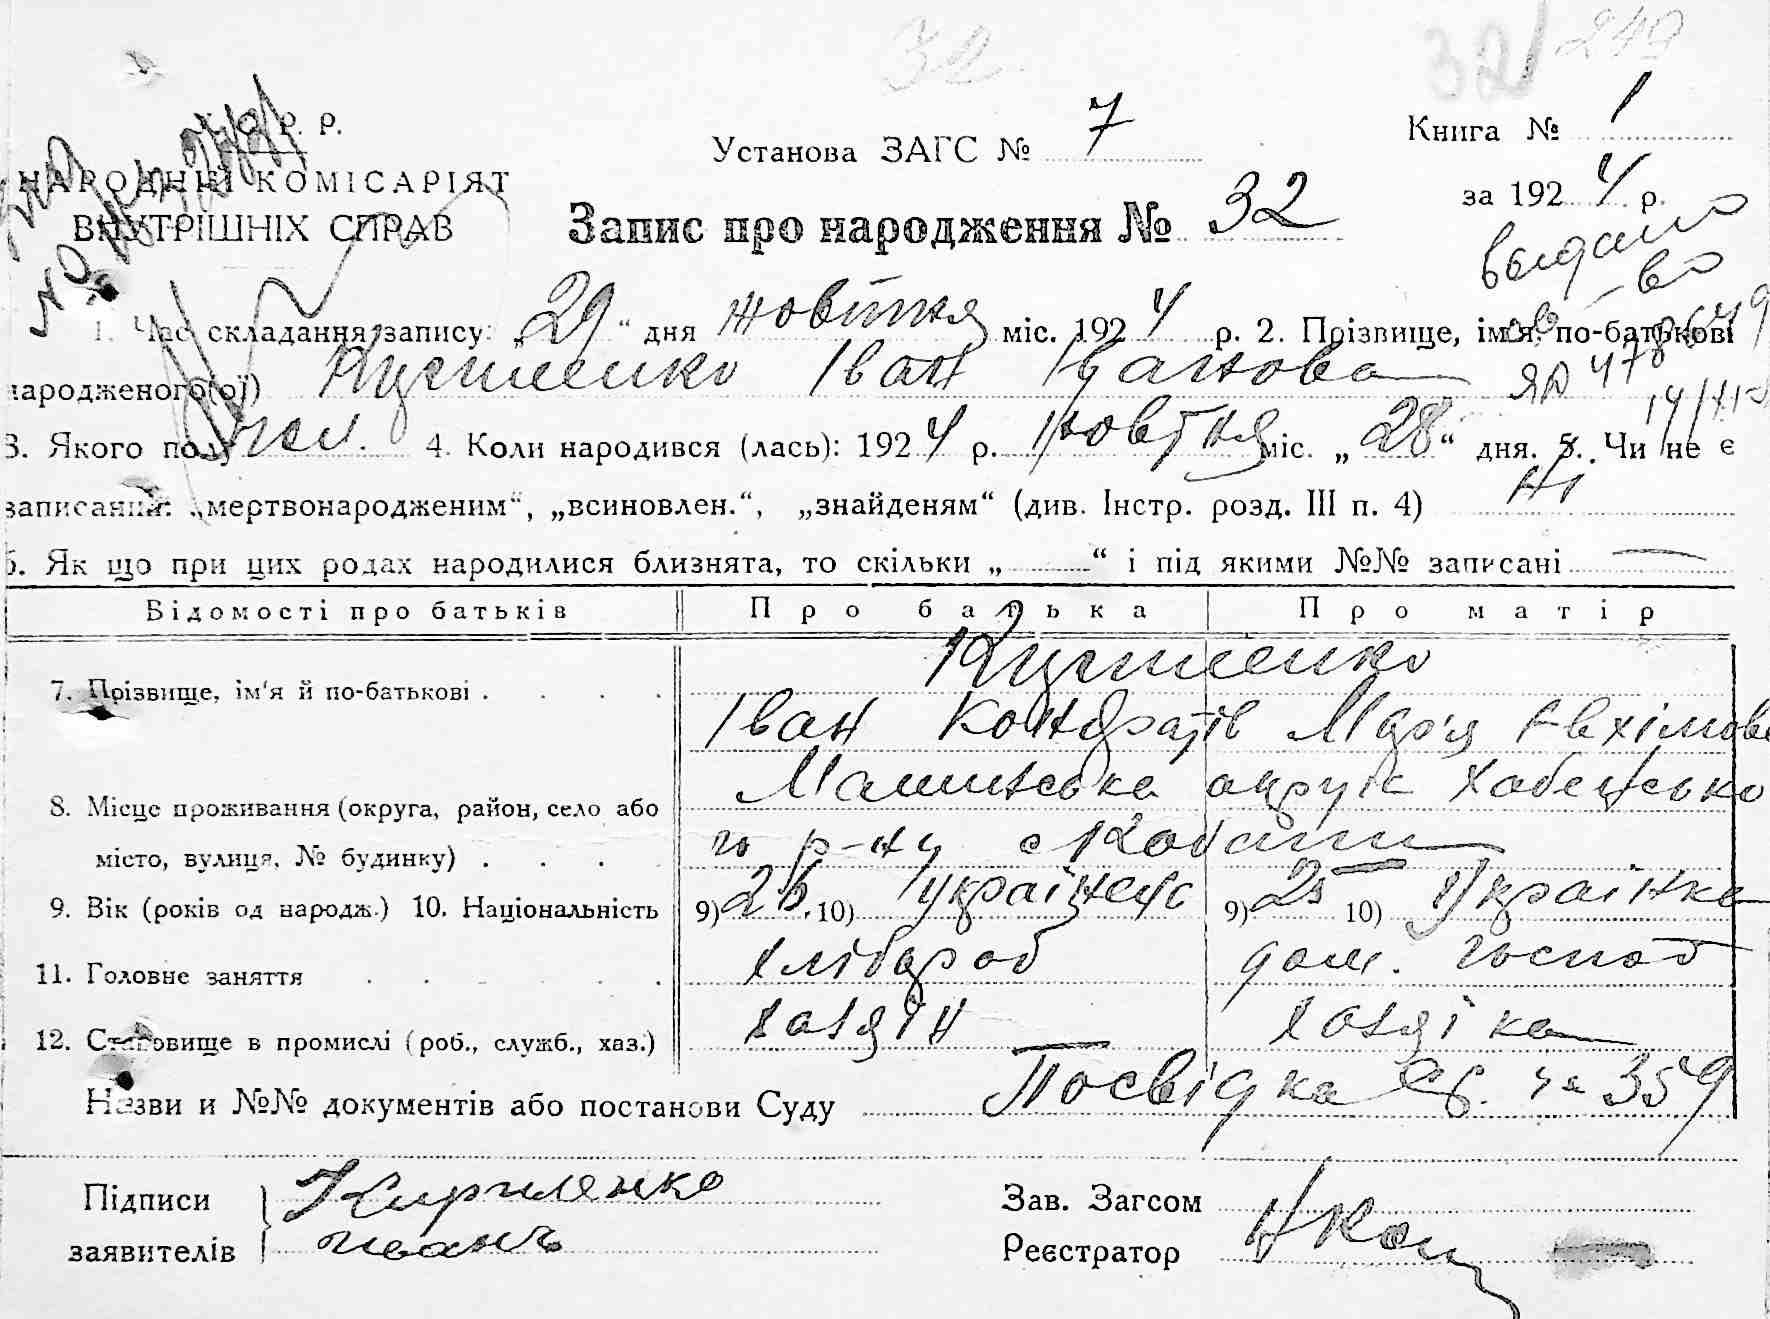 32
32 249
Р. Р.
НАРОДНІЙ КОМІСАРІЯТ
ВНУТРІШНІХ СПРАВ
Установа ЗАГС № 7
Книга № 1
за 1924 р.
Запис про народження № 32
1. Час складання запису: „29“ дня жовтня міс. 1924 р. 2. Прізвище, ім'я, по-батькові
народженого(ої) Кириленко Іван Іванова
3. Якого полу чол. 4. Коли народився (лась): 1924 р. жовтня міс. „28“ дня. 5. Чи не є
записаний: „мертвонародженим“, „всиновлен.“, „знайденям“ (див. Інстр. розд. III п. 4) Ні
6. Як що при цих родах народилися близнята, то скільки „ “ і під якими №№ записані —
Відомості про батьків Про батька Про матір
Кириленко
7. Прізвище, ім'я й по-батькові . . . .
Іван Кондратів Мар'я Евхімова
Малинська округа Хабенсько
8. Місце проживання (округа, район, село або
го р-ну с Кобани
місто, вулиця, № будинку) . . . .
9. Вік (років од народж.) 10. Національність 9) 26. 10) українець 9) 25 10) Українка
11. Головне заняття . . . . . хлібороб дом. господ
12. Становище в промислі (роб., служб., хаз.) хазяїн хазяїка
Назви и №№ документів або постанови Суду Посвідка за 359
Підписи
заявителів
Кириленко
Иванъ
Зав. Загсом
Реєстратор